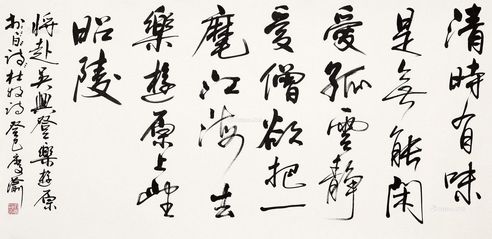 清時有味
是無能閑
愛孤雲靜
愛僧欲把一
麾江海去
樂遊原上望
昭陵
將赴吳興登樂遊原
杜牧詩癸巳